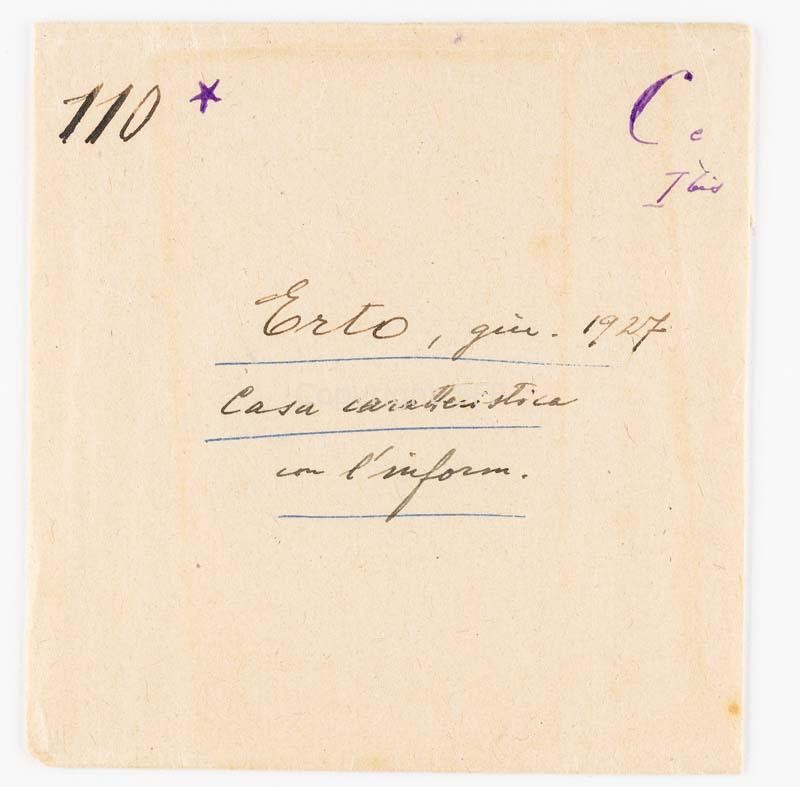 110 * C. c
I bis
Erto, giu. 1927
Casa caratteristica
con l'inform.